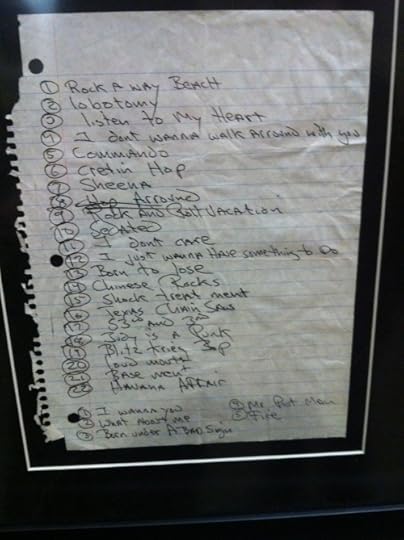 ① Rock A way Beach
② lobotomy
③ listen to My Heart
④ I dont wanna walk Arround with you
⑤ Commando
⑥ Cretin Hop
⑦ Sheena
⑧ Hop Arround
Rock And Roll Vacation
Sedated
I dont care
I Just wanna Have something to Do
Born to lose
Chinese Rocks
Shock treat ment
Texas Chain Saw
53rd AND 3rd
is A Punk
Blitz Krieg Bop
loud mouth
Base ment
Havana Affair
I wanna you
What About me
Born under A BAD Sign
Mr. Post Man
Fire